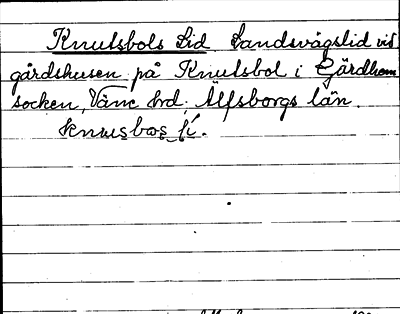 Knutsbols Lid Landsvägslid vid
gårdshusen på Knutsbol i Gärdhem
socken, Väne hd, Älfsborgs län.
knuusbos li.